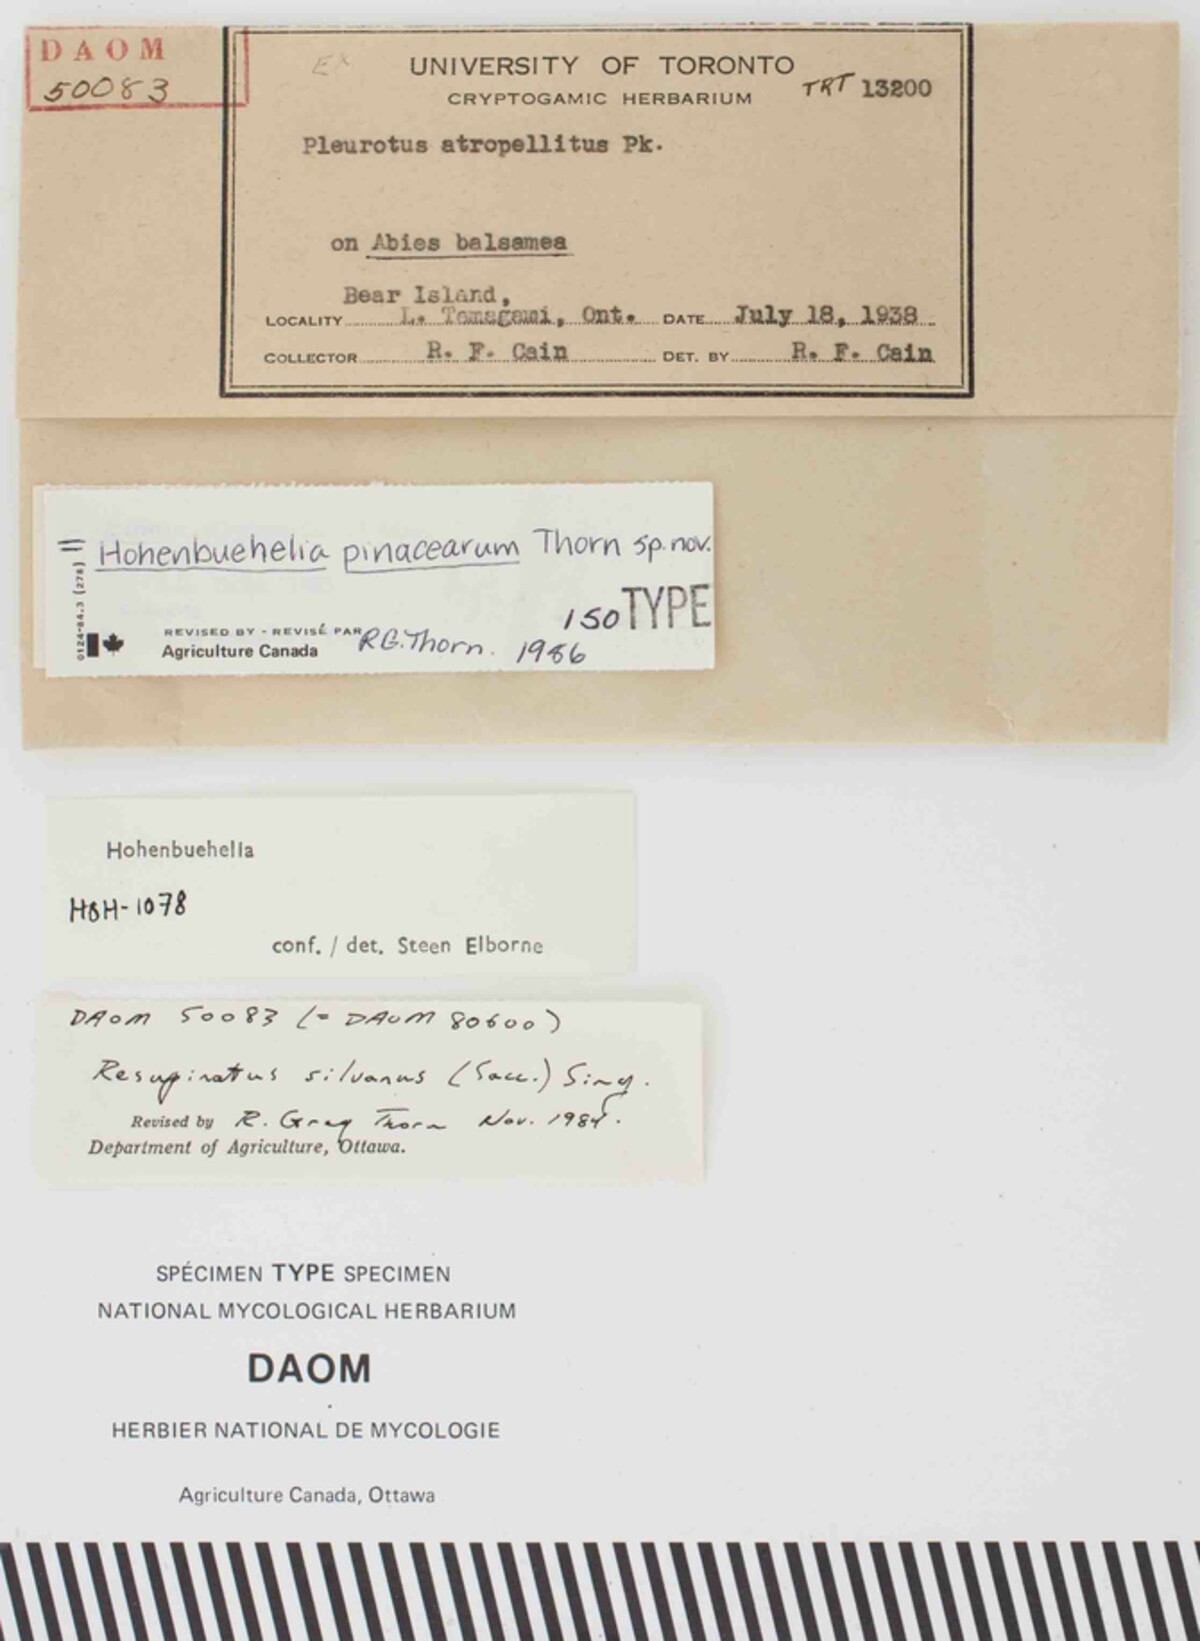 DAOM
50083
Ex
UNIVERSITY OF TORONTO
CRYPTOGAMIC HERBARIUM
TRT 13200
Pleurotus atropellitus Pk.
on Abies balsamea
Bear Island,
LOCALITY L. Temagami, Ont. DATE July 18, 1938
COLLECTOR R. F. Cain DET. BY R. F. Cain
= Hohenbuehelia pinacearum Thorn sp. nov.
ISOTYPE
0124-84.3 (278)
REVISED BY - REVISÉ PAR
Agriculture Canada R.G. Thorn. 1986
Hohenbuehelia
HOH-1078
conf. / det. Steen Elborne
DAOM 50083 (= DAOM 80600)
Resupinatus silvanus (Sacc.) Sing.
Revised by R. Greg Thorn Nov. 1984.
Department of Agriculture, Ottawa.
SPÉCIMEN TYPE SPECIMEN
NATIONAL MYCOLOGICAL HERBARIUM
DAOM
HERBIER NATIONAL DE MYCOLOGIE
Agriculture Canada, Ottawa